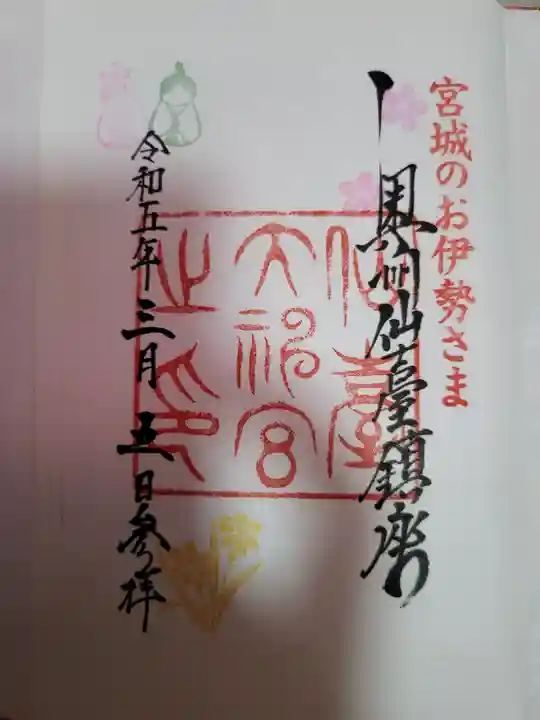 宮城のお伊勢さま
奥州仙臺鎮座
仙臺
大神宮
之印
令和五年三月五日参拝